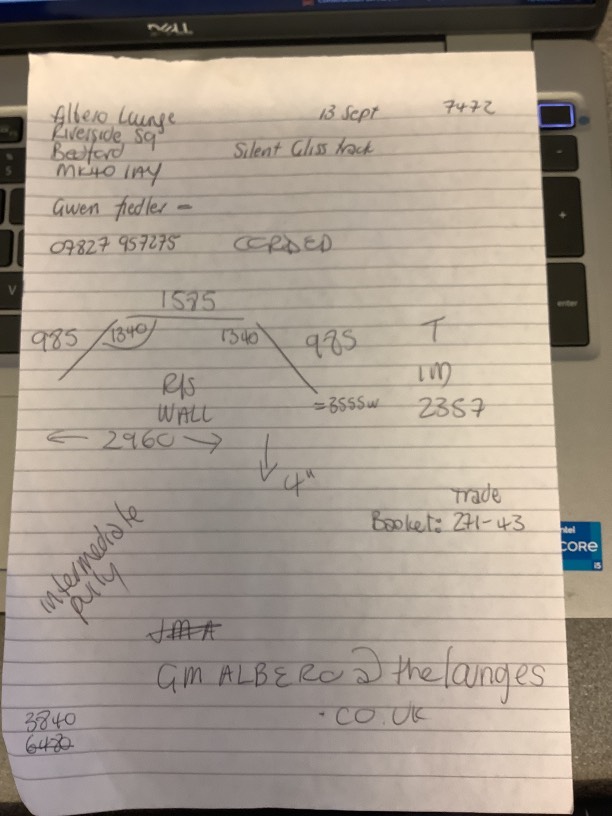 DELL
Albero Lounge 13 Sept 7472
Riverside Sq
Bedford Silent Gliss track
MK40 1AY
Gwen fiedler -
07827 957275 CORDED
1575
985 1340 1340 985 T
R/S 1M
WALL =3555w 2357
← 2960 →
↓ 4"
Trade
Booklet: 271-43
intermediate
pully
JMA
GM ALBERO @ thelounges
.CO.UK
3840
6480
enter
intel
CORE
i5